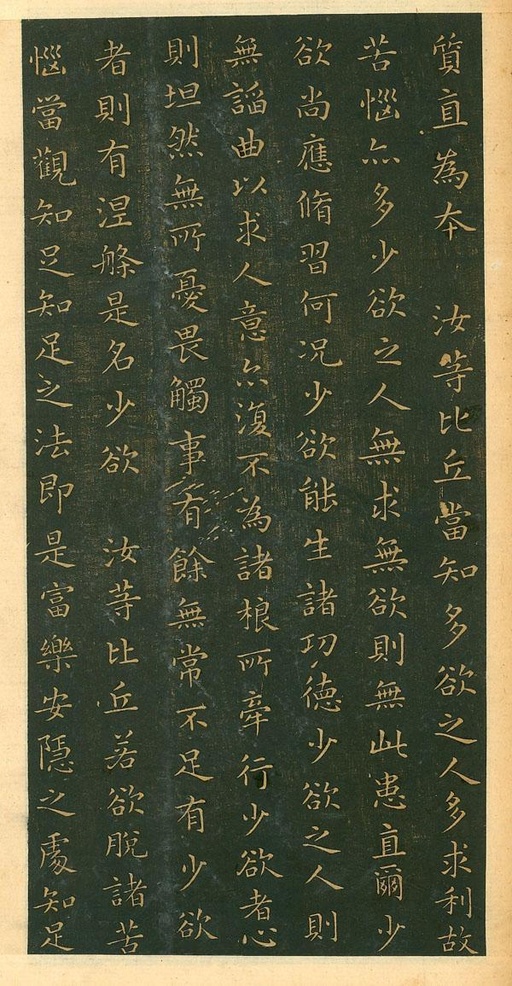 質直為本 汝等比丘當知多欲之人多求利故
苦惱亦多少欲之人無求無欲則無此患直爾少
欲尚應脩習何況少欲能生諸功德少欲之人則
無謟曲以求人意亦復不為諸根所牽行少欲者心
則坦然無所憂畏觸事有餘無常不足有少欲
者則有涅槃是名少欲 汝等比丘若欲脫諸苦
惱當觀知足知足之法即是富樂安隱之處知足